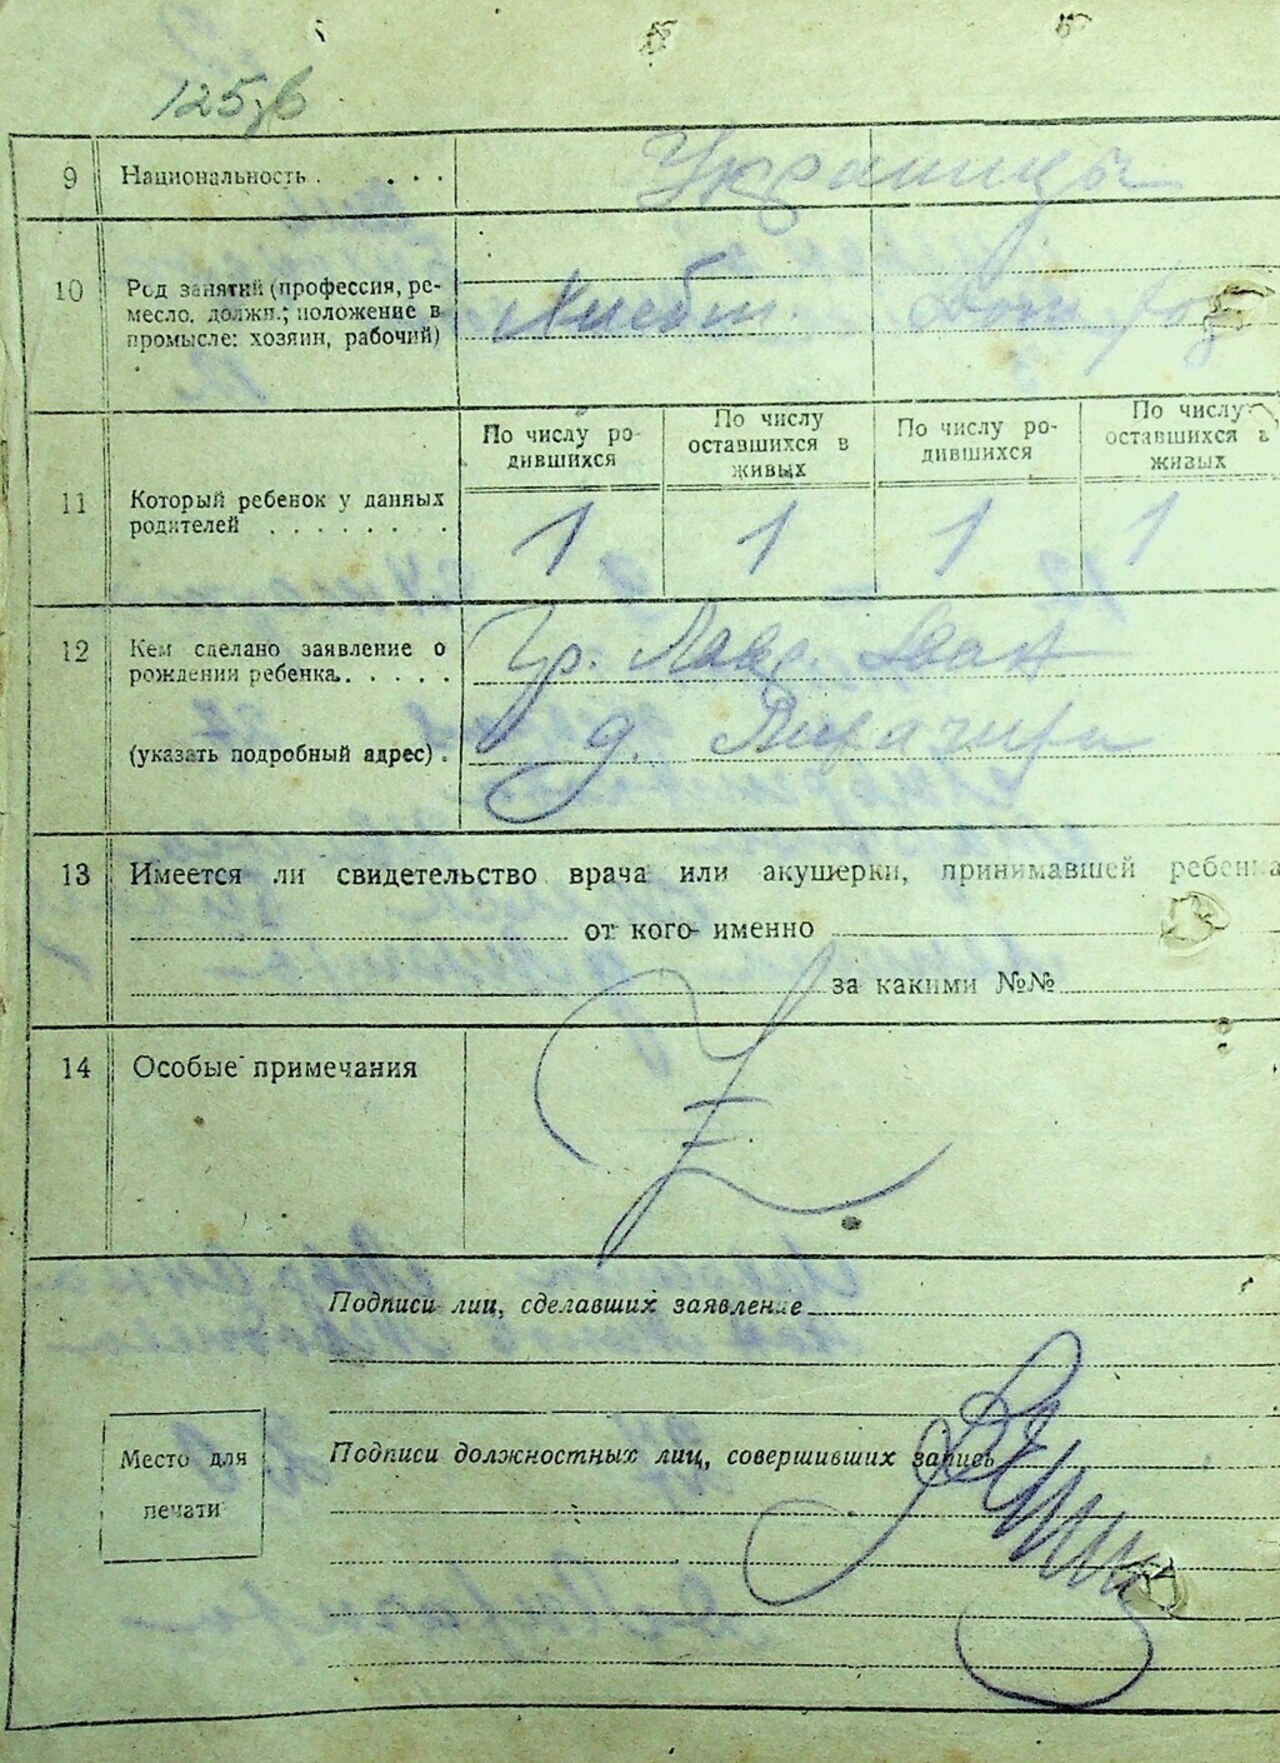 125,в
9 Национальность . . . . Украинцы
10 Род занятий (профессия, ре-
месло, должн.; положение в
промысле: хозяин, рабочий)
Хлебп. Дом хоз
По числу ро-
дившихся
По числу
оставшихся в
живых
По числу ро-
дившихся
По числу
оставшихся в
живых
11 Который ребенок у данных
родителей . . . . . . .
1 1 1 1
12 Кем сделано заявление о
рождении ребенка. . . . . .
Гр. Иван
(указать подробный адрес) .
д.
13 Имеется ли свидетельство врача или акушерки, принимавшей ребенка
от кого именно
за какими №№
14 Особые примечания
Подписи лиц, сделавших заявление
Место для
печати
Подписи должностных лиц, совершивших запись